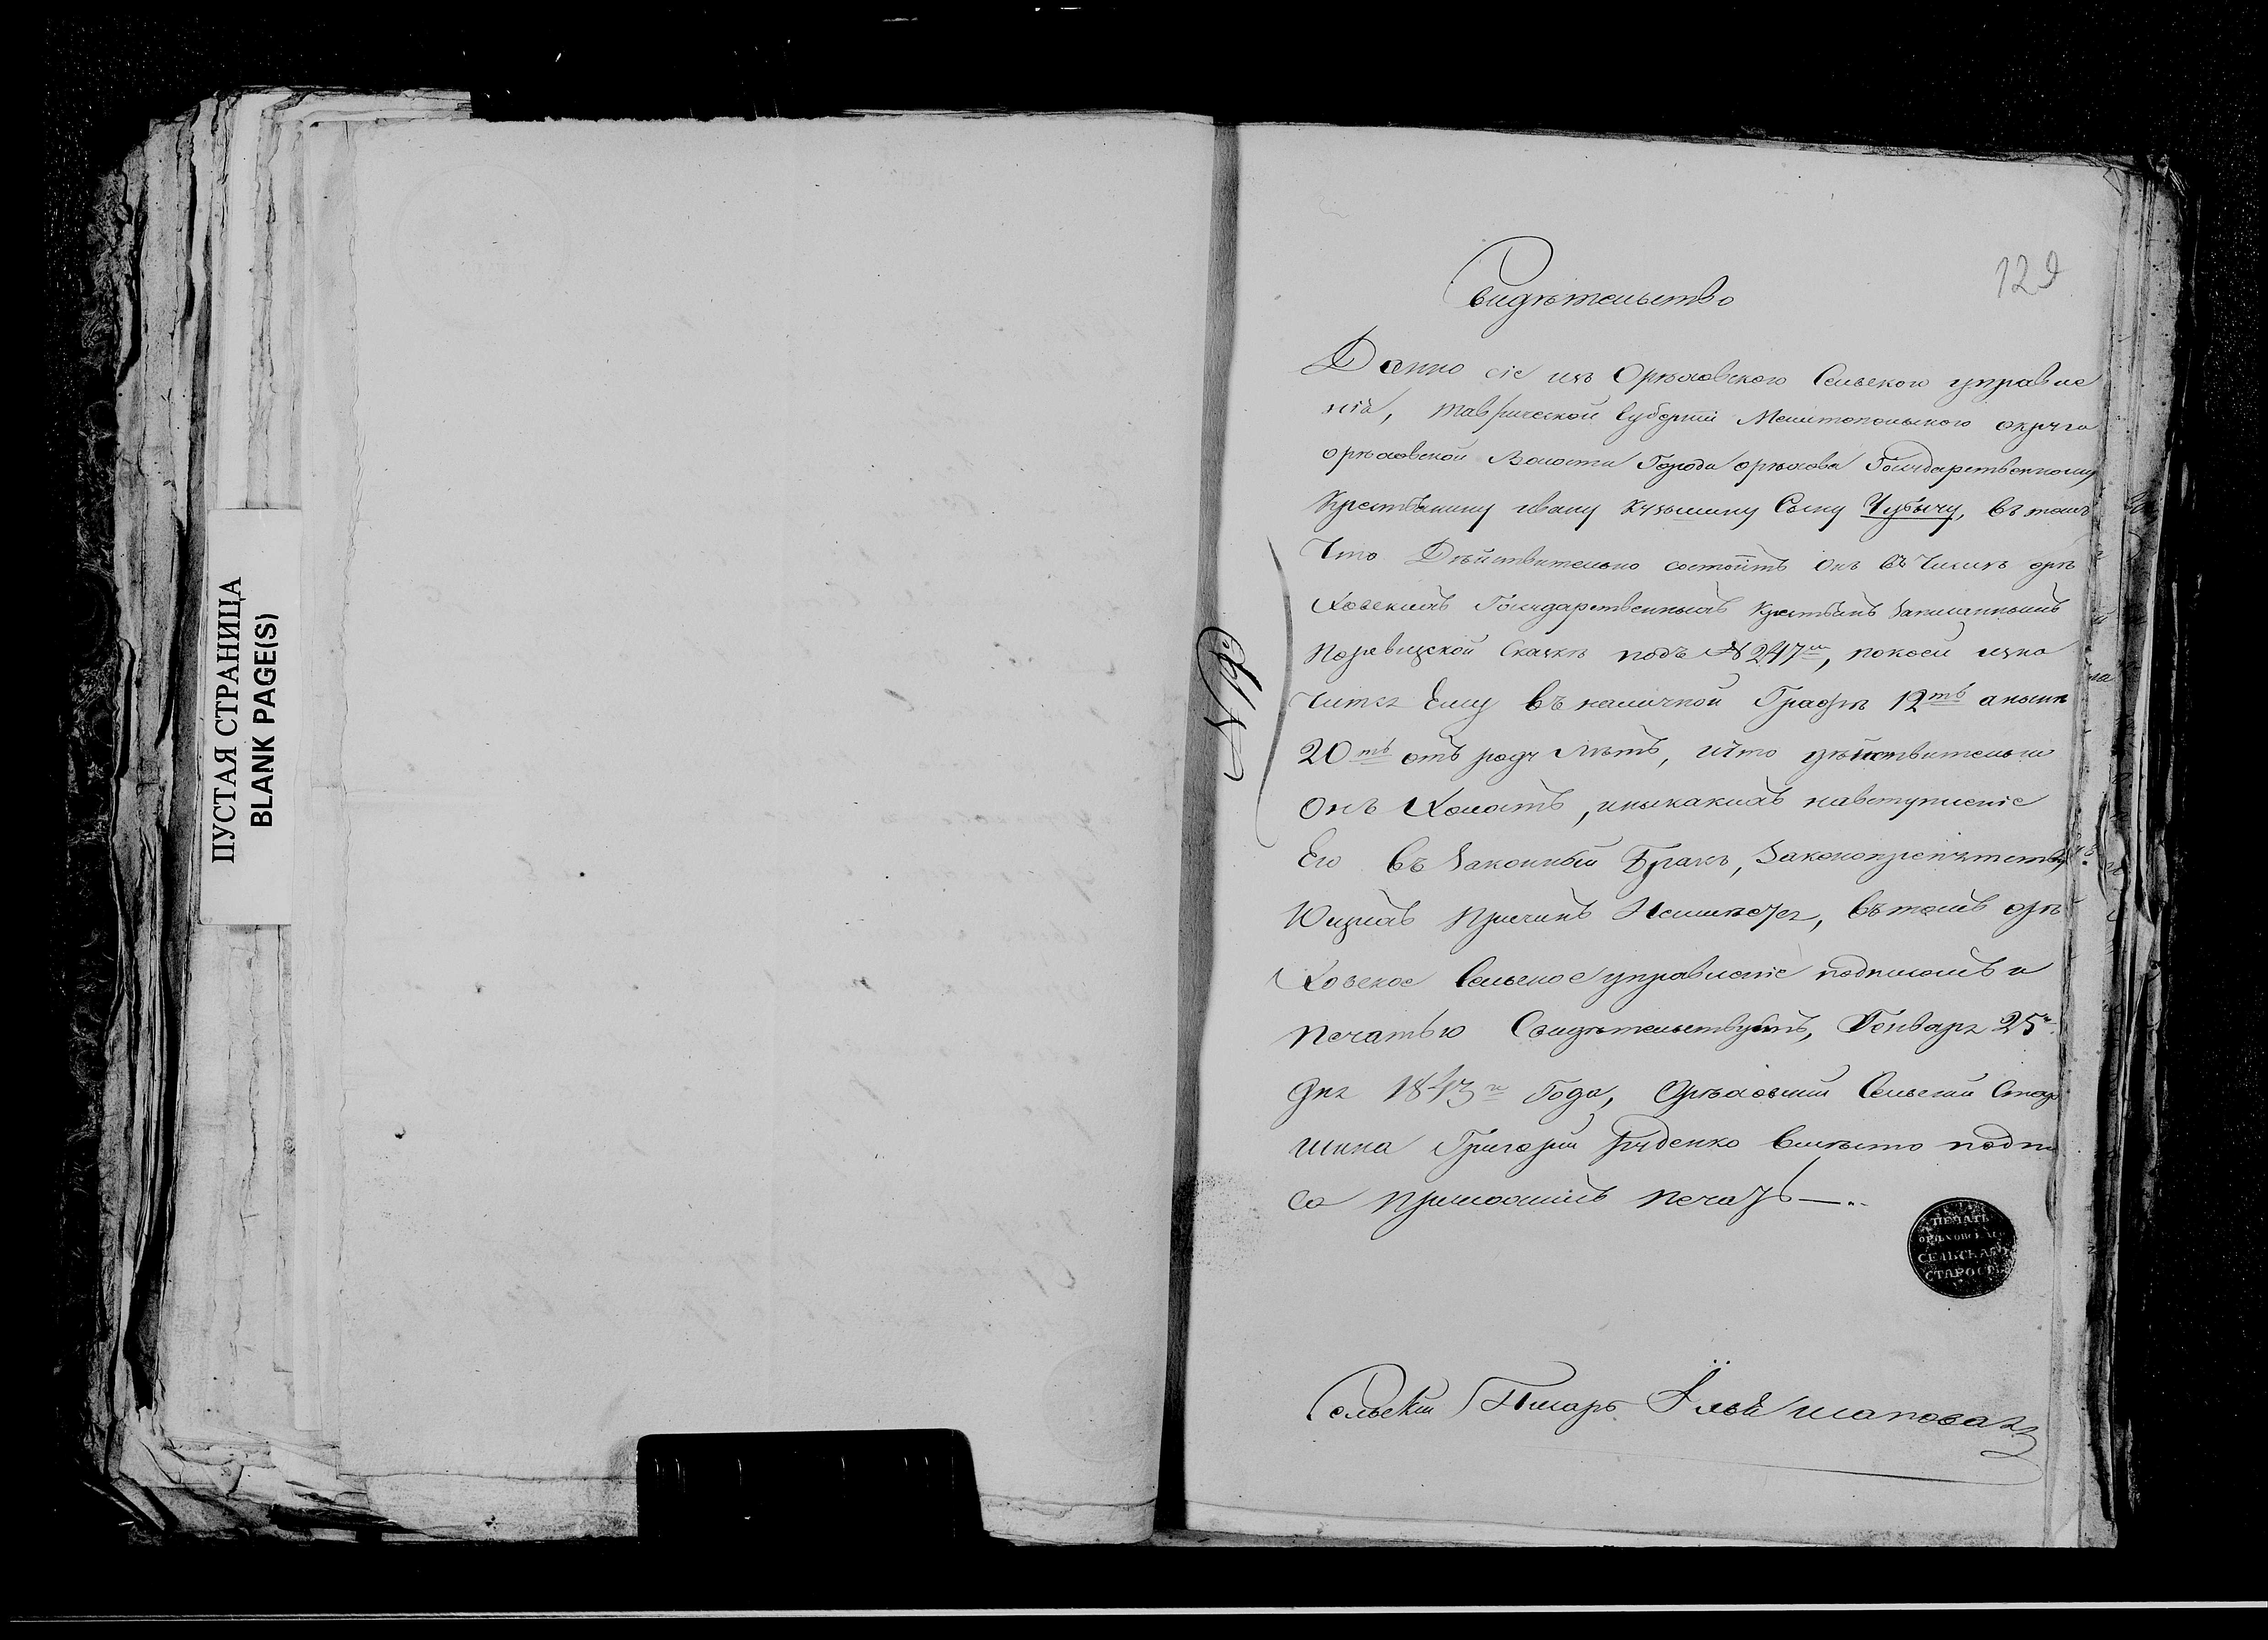 ПУСТАЯ СТРАНИЦА
BLANK PAGE(S)
129
Свидѣтельство
Данно сіе изъ Орѣховскаго Сельскаго управле
нія, таврической Губерніи Мелитопольскаго округа
орѣховской Волости Города орѣхова Государственному
Крестьянину ивану Кузьмину Сыну Чубычу, въ томъ
Что Дѣйствительно состоитъ Онъ въ Числѣ орѣ
Ховскихъ Государственныхъ Крестьянъ Записаннымъ
Поревизской Сказкѣ подъ № 247м, покоей изна
Чится Ему въ наличной Графѣ 12ть анынѣ
20ть отъ роду Лѣтъ, ичто дѣйствительно
Онъ Холостъ, иныкакихъ навступленіе
Его въ Законный Бракъ, Законопрепятству
Ющихъ Причинъ Неимѣетъ, въ томъ орѣ
Ховское Сельское управленіе подписомъ и
печатью Свидѣтельствуетъ, Генваря 25го
дня 1843го Года, Орѣховский Сельский Стар
шина Григорий Руденко вмѣсто подпи
са приложилъ печать
№ 19
ПЕЧАТЬ
ОРѢХОВСКАГО
СЕЛЬСКАГО
СТАРОСТЫ
Сельский Писарь Илья Шаповал